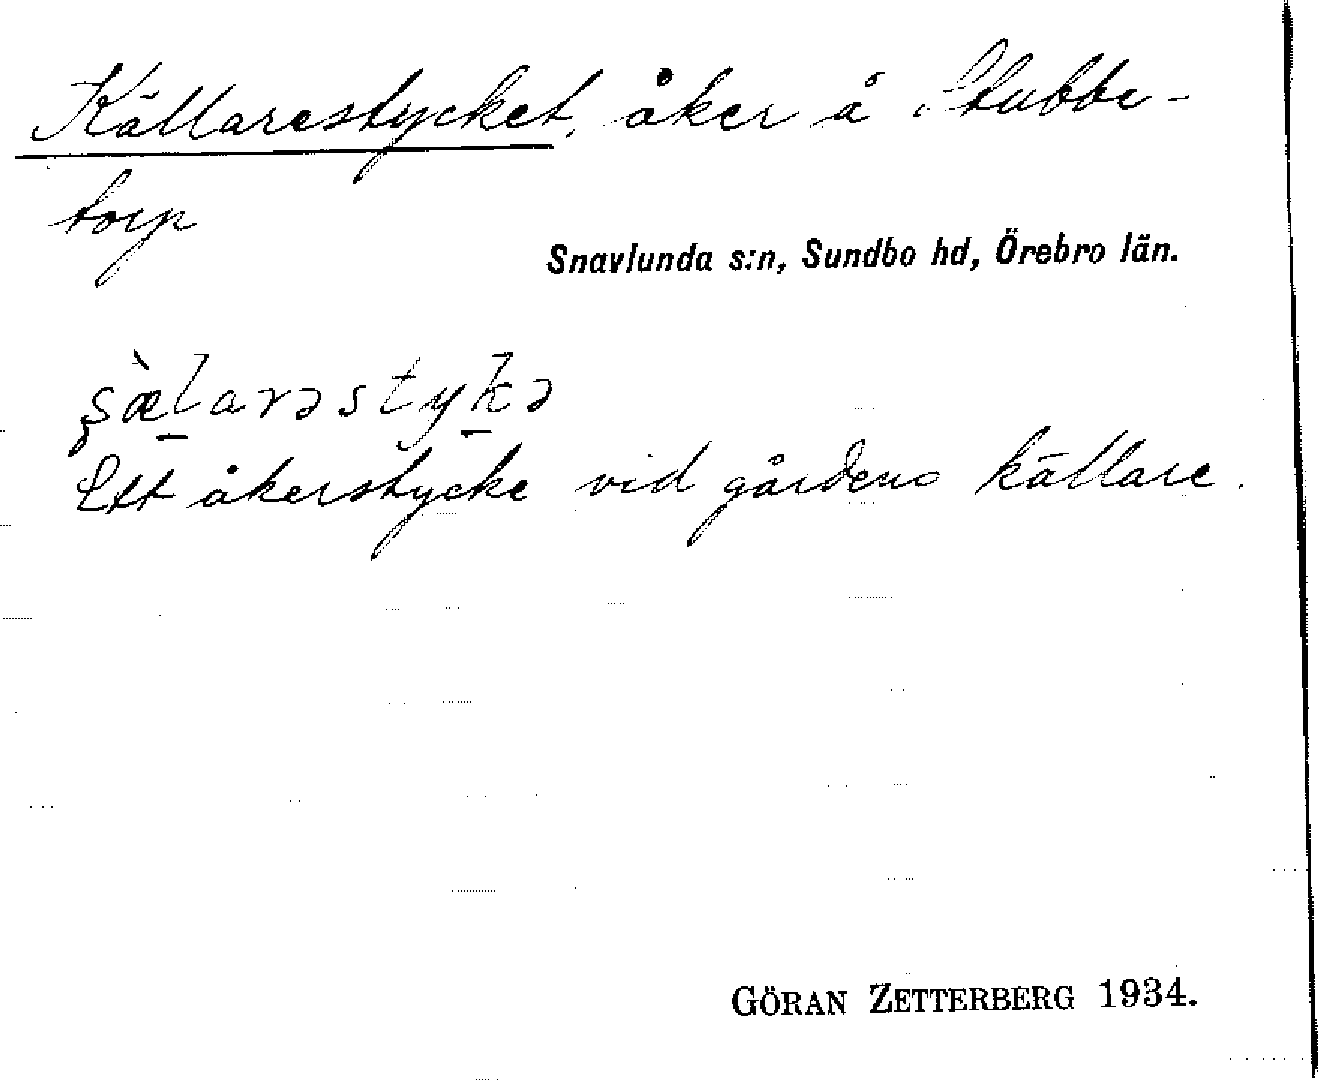 Källarestycket, åker å Stubbe-
torp
Snavlunda s:n, Sundbo hd, Örebro län.
s̨æ̀l̠arəstyk̠ə
Ett åkerstycke vid gårdens källare.
GÖRAN ZETTERBERG 1934.